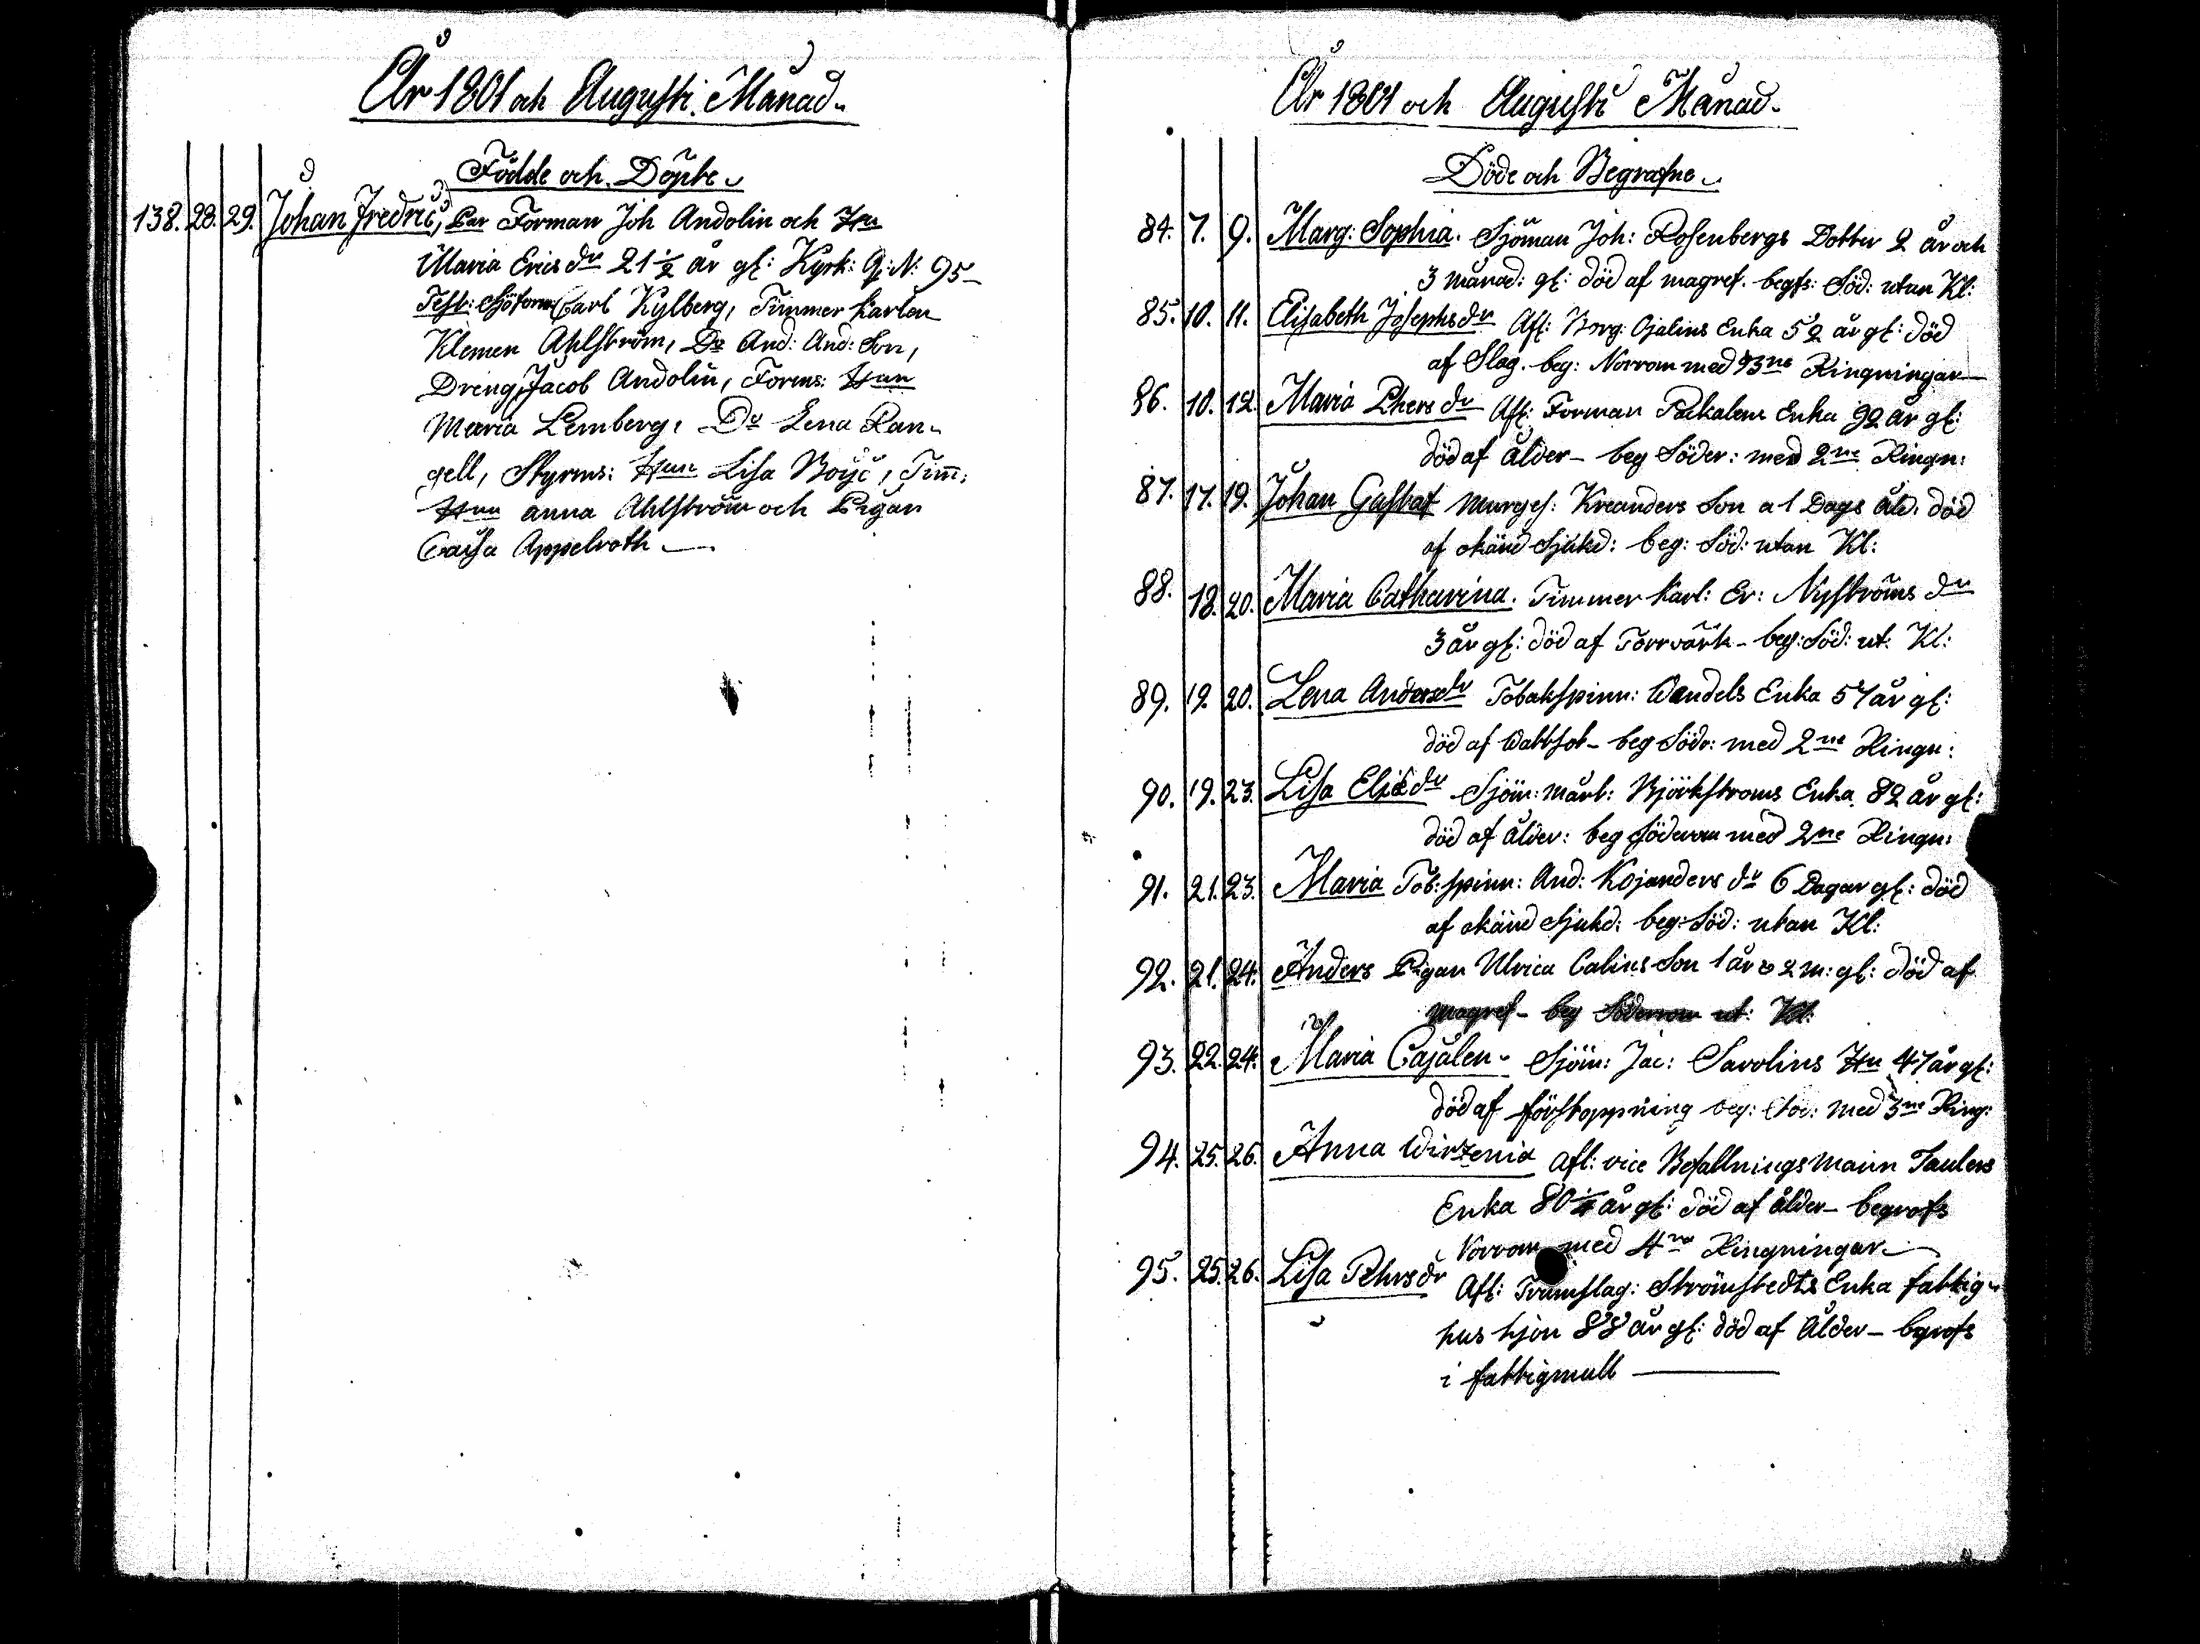 År 1801 och Augusti Månad.
Födde och Döpte
138. 28. 29. Johan Fredric, Par Forman Joh Andolin och Hu
Maria Erics dr 21 1/2 år gl: Kyrk: G: N: 95
Test: Carl Kylberg, Timmer karlen
Klemen Ahlström, Do And: And: Son,
Dreng Jacob Andolin, Forms: Hun
Maria Lemberg, Do Lena Ran-
gell, Styrms: Hun Lisa Boijé, Tim:
Hun Anna Ahlström och Pigan
Caisa Appelroth
År 1801 och Augusti Månad.
Döde och Begrafne
84. 7. 9. Marg: Sophia. Sjöman Joh: Rosenbergs Dotter 2 år och
3 månad: gl: död af magref. begfs: Söd: utan Kl:
85. 10. 11. Elisabeth Josephs dr Afl: Borg: Ojalins Enka 52 år gl: död
af Slag. beg: Norrom med 3ne Ringningar
86. 10. 12. Maria Phers dr Afl: Forman Pakalens Enka 92 år gl:
död af Ålder - beg Söder: med 2ne Ringn:
87. 17. 19. Johan Gustaf Murges: Kreanders Son a 1 Dags åld. död
af okänd Sjukd: beg: Söd: utan Kl:
88. 18. 20. Maria Catharina. Timmer karl: Er: Nyströms dr
3 år gl: död af Torrvärk - beg: Söd: ut. Kl:
89. 19. 20. Lena Anders dr Tobakspinn: Wendels Enka 57 år gl:
död af Wattsot - beg Södr: med 2ne Ringn:
90. 19. 23. Lisa Elis dr Sjöm: märt: Björkströms Enka 82 år gl:
död af ålder: beg Söderom med 2ne Ringn:
91. 21. 23. Maria Tob: spinn: And: Kojanders dr 6 Dagar gl: död
af okänd Sjukd: beg: Söd: utan Kl:
92. 21. 24. Anders Pigan Ulrica Calins Son 1 år o 2 m: gl: död af
magref - beg Söderom ut: Kl:
93. 22. 24. Maria Cajalen Sjöm: Jac: Savolins Hu 47 år gl:
död af förstoppning beg: Söd: med 3ne Ring:
94. 25. 26. Anna Wirzenia Afl: vice Befallningsmann Taulers
Enka 80 1/4 år gl: död af ålder - begrofs
Norrom med 4ra Ringningar
95. 25. 26. Lisa Pehrs dr Afl: Trumslag: Strömstedts Enka fattig-
hus hjon 88 år gl: död af Ålder - bgrofs
i fattigmull